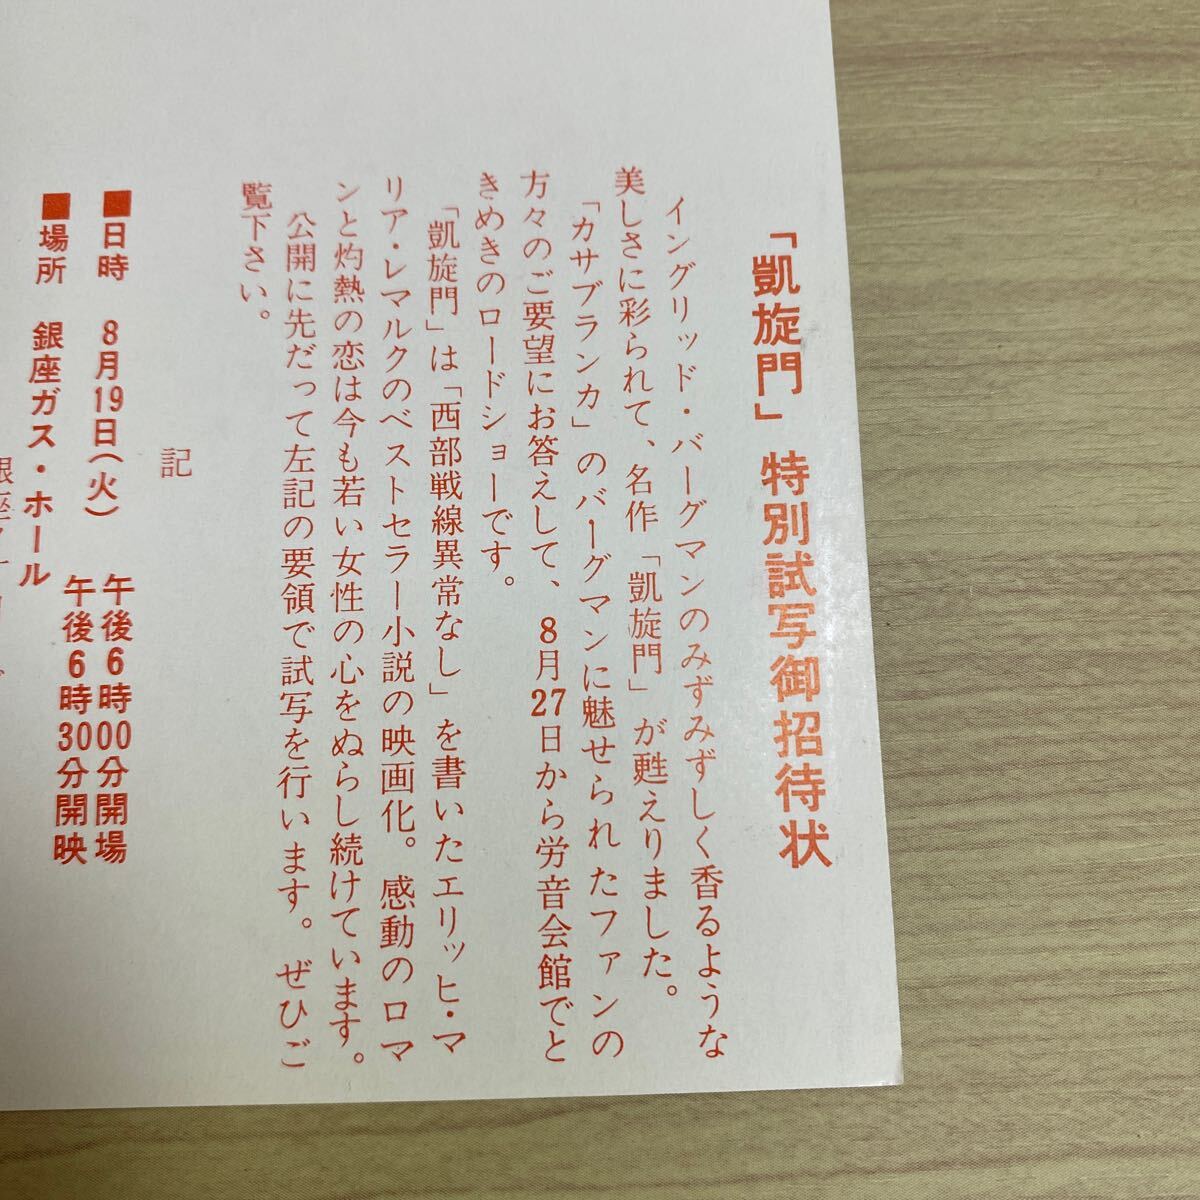 「凱旋門」特別試写御招待状
イングリッド・バーグマンのみずみずしく香るような
美しさに彩られて、名作「凱旋門」が甦えりました。
「カサブランカ」のバーグマンに魅せられたファンの
方々のご要望にお答えして、8月27日から労音会館でと
きめきのロードショーです。
「凱旋門」は「西部戦線異常なし」を書いたエリッヒ・マ
リア・レマルクのベストセラー小説の映画化。感動のロマ
ンと灼熱の恋は今も若い女性の心をぬらし続けています。
公開に先だって左記の要領で試写を行います。ぜひご
覧下さい。
記
■日時 8月19日(火) 午後6時00分開場
午後6時30分開映
■場所 銀座ガス・ホール